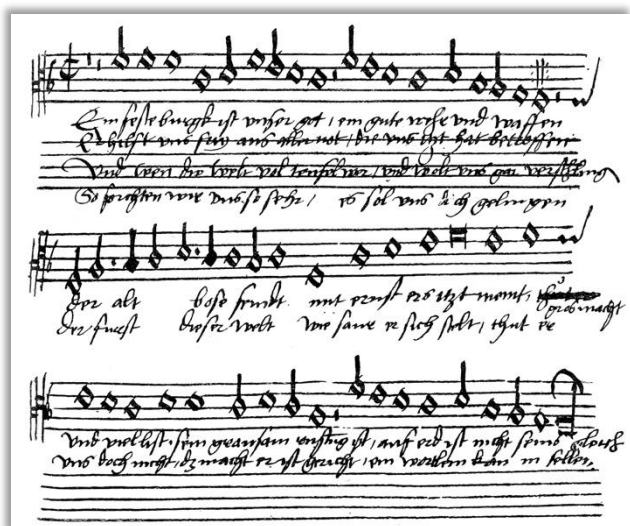 Ein feste burgk ist unser got, ein gute wehr und waffen
Er hilfft uns frey aus aller not, die uns itzt hat betroffen
Und wen die welt vol teufel wer, und wolt uns gar verschling
So forchten wir uns so sehr, es sol uns doch gelingen
der alt bose feindt mit ernst ers itzt meint,
gros macht
der furst dieser welt wie saur er sich stelt, thut er
und viel list sein grausam rustug ist, auf erd ist nicht seins gleich
uns doch nicht, dz macht er ist gericht, ein wortlein kan in fellen.